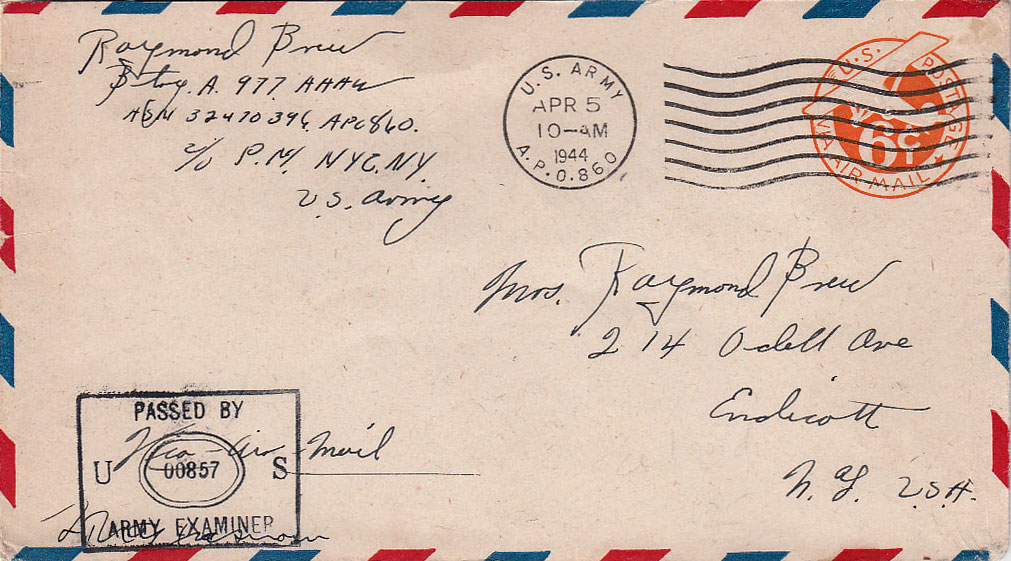 Raymond Brew
Btry. A. 977. AAAW
ASN 32470396. APO 860.
c/o P.M. NYC. N.Y.
U.S. Army
U.S. ARMY
APR 5
10-AM
1944
A.P.O. 860
U.S. POSTAGE
6¢
VIA AIR MAIL
Mrs. Raymond Brew
214 Odell Ave
Endicott
N.Y. U.S.A.
PASSED BY
Via - Air - Mail
U 00857 S
ARMY EXAMINER